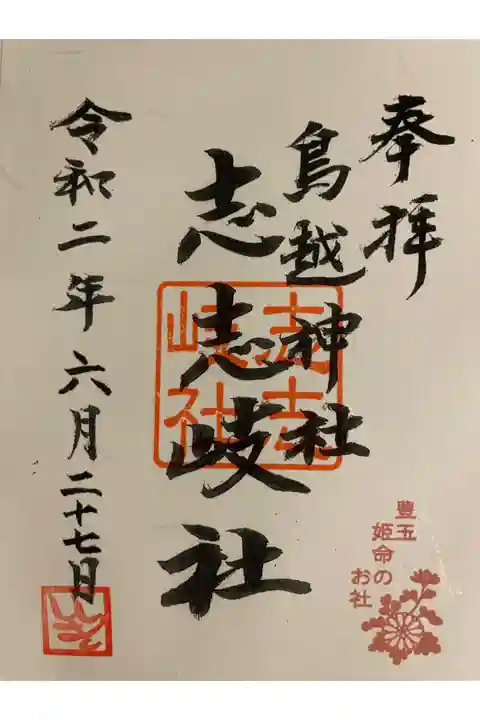 奉拝
鳥越神社
志志岐社
令和二年六月二十七日
志志
岐社
豊玉
姫命の
お社